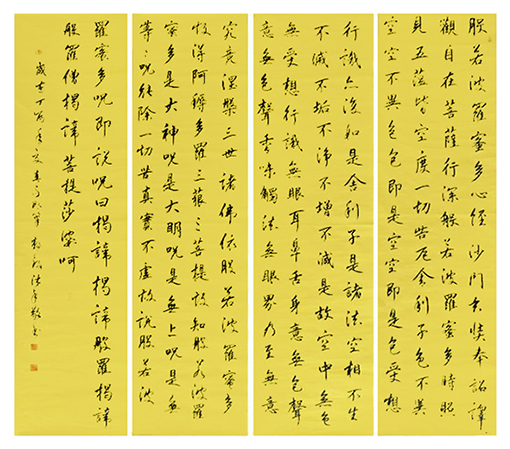 般若波羅蜜多心經沙門玄奘奉詔譯
觀自在菩薩行深般若波羅蜜多時照
見五蘊皆空度一切苦厄舍利子色不異
空空不異色色即是空空即是色受想
行識亦復如是舍利子是諸法空相不生
不滅不垢不淨不增不減是故空中無色
無受想行識無眼耳鼻舌身意無色聲
意無色聲香味觸法無眼界乃至無意
究竟涅槃三世諸佛依般若波羅蜜多
故得阿耨多羅三藐〻菩提故知般若波羅
蜜多是大神咒是大明咒是無上咒是無
等〻咒能除一切苦真實不虛故說般若波
羅蜜多咒即說咒曰揭諦揭諦般羅揭諦
般羅僧揭諦菩提莎婆呵
歲在丁酉年夏